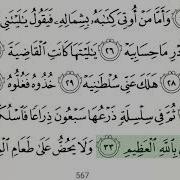 وَأَمَّا مَنْ أُوتِيَ كِتَٰبَهُۥ بِشِمَالِهِۦ فَيَقُولُ يَٰلَيْتَنِي
دْرِ مَا حِسَابِيَهْ ٢٦ يَٰلَيْتَهَا كَانَتِ ٱلْقَاضِيَةَ
٢٨ هَلَكَ عَنِّي سُلْطَٰنِيَهْ ٢٩ خُذُوهُ فَغُلُّوهُ
فِي سِلْسِلَةٍ ذَرْعُهَا سَبْعُونَ ذِرَاعًا
بِٱللَّهِ ٱلْعَظِيمِ ٣٣ وَلَا يَحُضُّ عَلَىٰ طَعَامِ
567